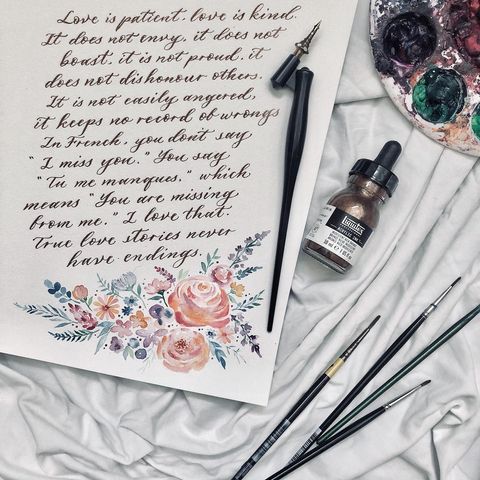 Love is patient, love is kind.
It does not envy, it does not
boast, it is not proud, it
does not dishonour others.
It is not easily angered,
it keeps no record of wrongs
In French, you don't say
"I miss you." You say
"Tu me manques," which
means "You are missing
from me." I love that.
True love stories never
have endings.
Liquitex
30 ml